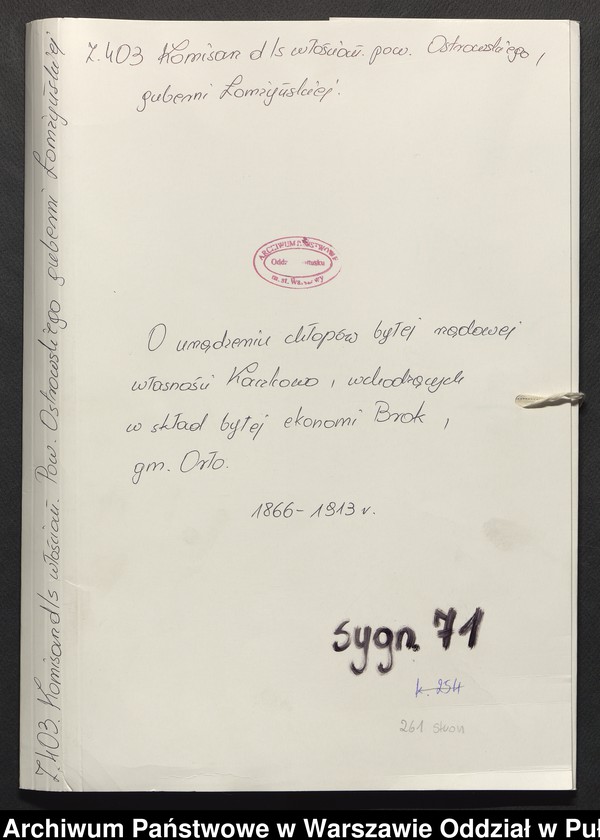 Z.403 Komisarz d/s włościań. pow. Ostrowskiego,
guberni Łomżyńskiej.
Z.403. Komisarz d/s włościań. Pow. Ostrowskiego guberni Łomżyńskiej
ARCHIWUM PAŃSTWOWE
m. st. Warszawy
O urządzeniu chłopów byłej rządowej
własności Kaczkowo, wchodzących
w skład byłej ekonomi Brok,
gm. Orło.
1866-1913 r.
sygn. 71
k. 254
261 stron
Archiwum Państwowe w Warszawie Oddział w Puł